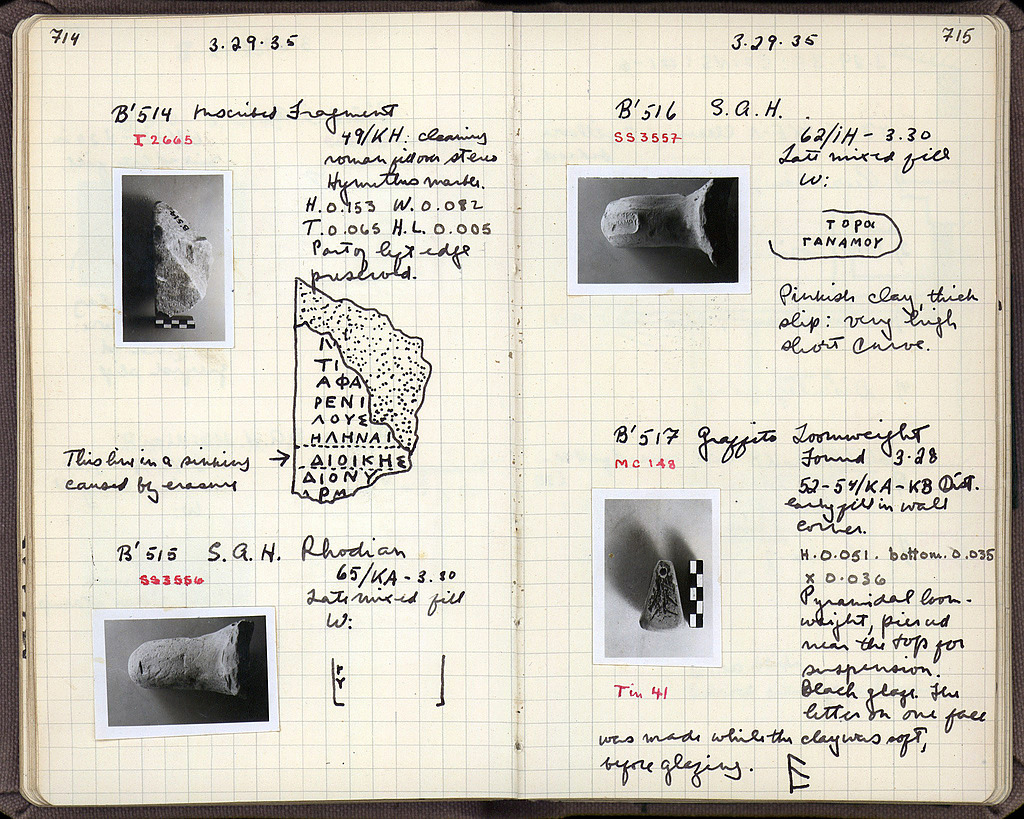 714
3.29.35
B'514 Inscribed Fragment
I 2665
49/KH: cleaning
roman over stereo
Hymettus marble.
H. 0.153 W. 0.082
T. 0.065 H.L. 0.005
Part of left edge
preserved.
ΤΙ
ΑΦΑ
ΡΕΝΙ
ΛΟΥΣ
ΗΛΗΝΑΙ
ΔΙΟΙΚΗΣ
ΔΙΟΝΥ
ΑΡΜ
This line in a sinking →
caused by erasure
B'515 S.A.H. Rhodian
SS3556
65/KA - 3.30
Late mixed fill
W:
[ΓΥ ]
715
3.29.35
B'516 S.A.H.
SS3557
62/ΙΗ - 3.30
Late mixed fill
W:
ΤΟΡΑ
ΓΑΝΑΜΟΥ
Pinkish clay, thick
slip: very high
short curve.
B'517 Graffito Loomweight
MC 148
Found 3-28
52-54/KA-KB Dist.
early fill in wall
corner.
H. 0.051. bottom. 0.035
x 0.036
Pyramidal loom-
weight, pierced
near the top for
suspension.
Black glaze. The
Tin 41
letter on one face
was made while the clay was soft,
before glazing.